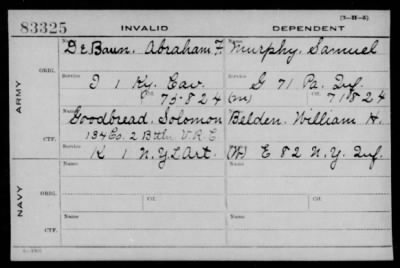 (3-H-5)
83325 INVALID DEPENDENT
ARMY
ORIG.
Name De Baun, Abraham F. Murphy, Samuel
Service Service
I 1 Ky. Cav. G 71 Pa. Inf.
Ctf. 75.824 (m) Ctf. 71.824
CTF.
Name Goodbread, Solomon Belden, William H.
134 Co. 2 Battn V.R.C.
K 1 N.Y. L Art. (W) E 82 N.Y. Inf.
NAVY
ORIG.
Name Name
Service Service
Ctf. Ctf.
CTF.
Name Name